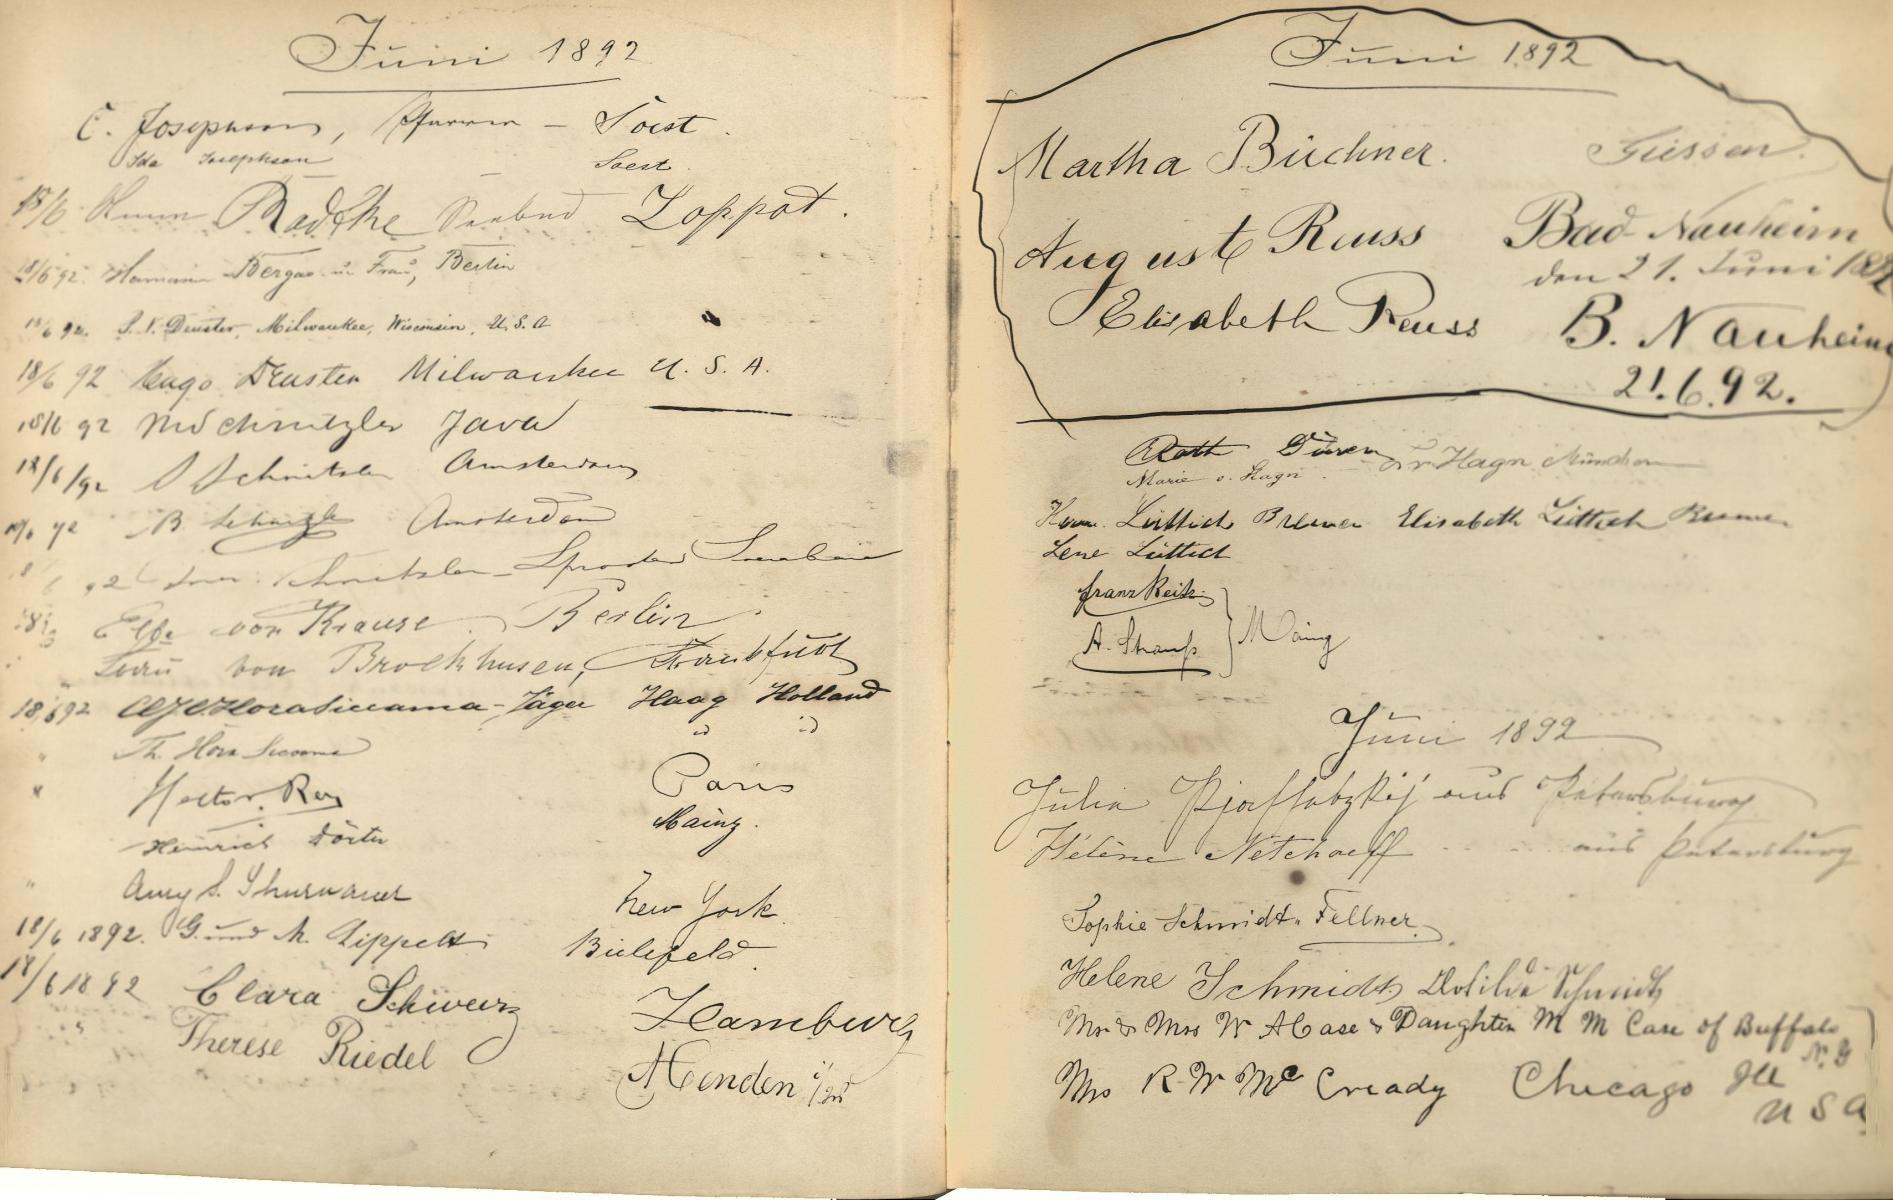 Juni 1892
C. Josephson, Pfarrer - Soest.
Ida Josephson Soest.
18/6 Radtke Seebad Zoppot.
18/6 92. Hermann Bergas u. Frau, Berlin
18/6 92. P. V. Deuster, Milwaukee, Wisconsin, U.S.A
18/6 92 Hugo Deuster Milwaukee U. S. A.
18/6 92 Schnitzler Java
18/6/92 Schnitzler Amsterdam
18/6 92 B. Schnitzler Amsterdam
92 Schnitzler Soerabaia
18/6 Else von Krause Berlin
von Brockhusen, Frankfurt
18/6 92 Hora Siccama-Jäger Haag Holland
" Th. Hora Siccama id id
" Hector Rey Paris
Heinrich Dörter Mainz.
" Amy S. Thurnauer New York
18/6 1892. G. und M. Lippelt Bielefeld.
18/6 1892 Clara Schwerz Hamburg
" Therese Riedel Menden
Juni 1892
Martha Büchner. Giessen.
August Reuss Bad-Nauheim
den 21. Juni 1892
Elisabeth Reuss B. Nauheim
21.6.92.
Roth Düren v Hagn München
Marie v. Hagn
Herm. Lüttich Bremen Elisabeth Lüttich Bremen
Lene Lüttich
Franz Reitz
A. Strauß Mainz
Juni 1892
Julia aus Petersburg
Hélène Netchaeff aus Petersburg
Sophie Schmidt-Fellner
Helene Schmidt, Clotilde Schmidt
Mr & Mrs W A Case & Daughter M M Case of Buffalo
N.Y
Mrs R W McCready Chicago Ill
U S A